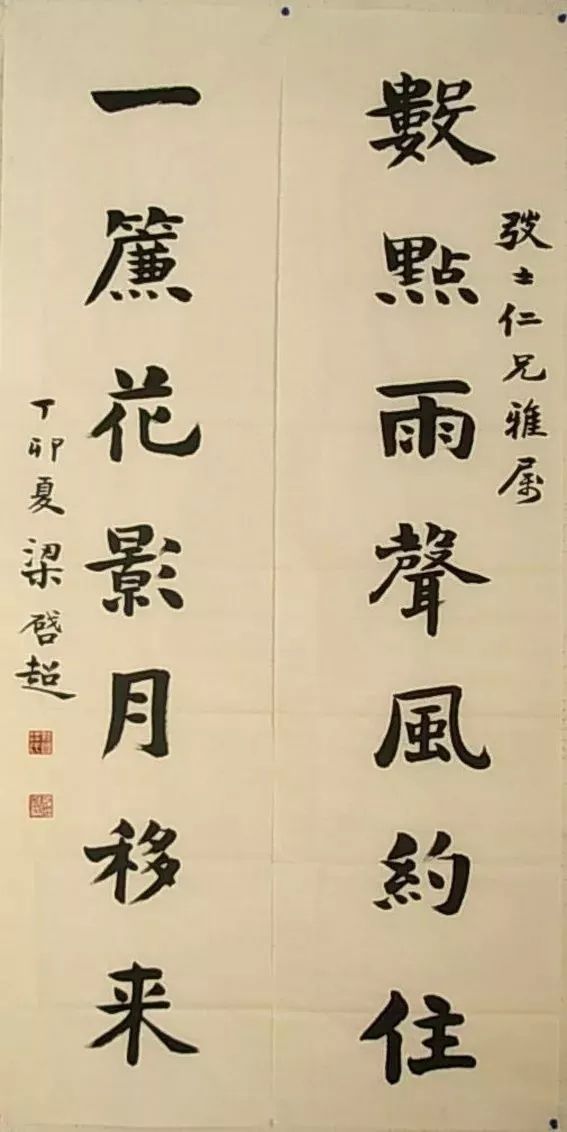 弢士仁兄雅属
數點雨聲風約住
一簾花影月移来
丁卯夏 梁啓超